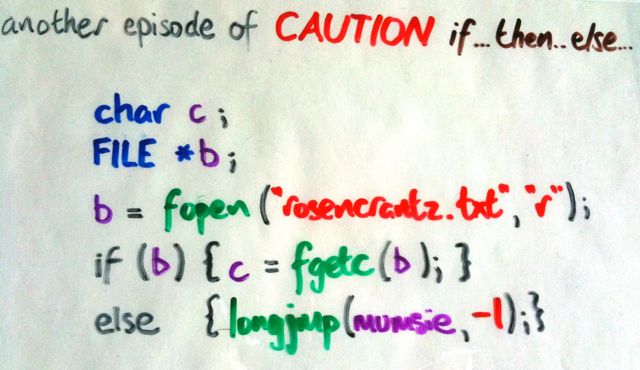 another episode of CAUTION if...then..else...
char c;
FILE *b;
b = fopen("rosencrantz.txt","r");
if (b) { c = fgetc(b); }
else { longjmp(mumsie,-1);}